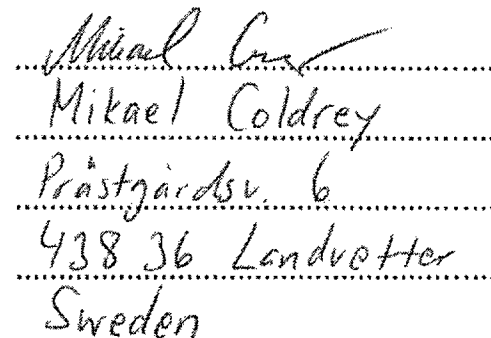 Mikael Coldrey
Prästgårdsv. 6
438 36 Landvetter
Sweden